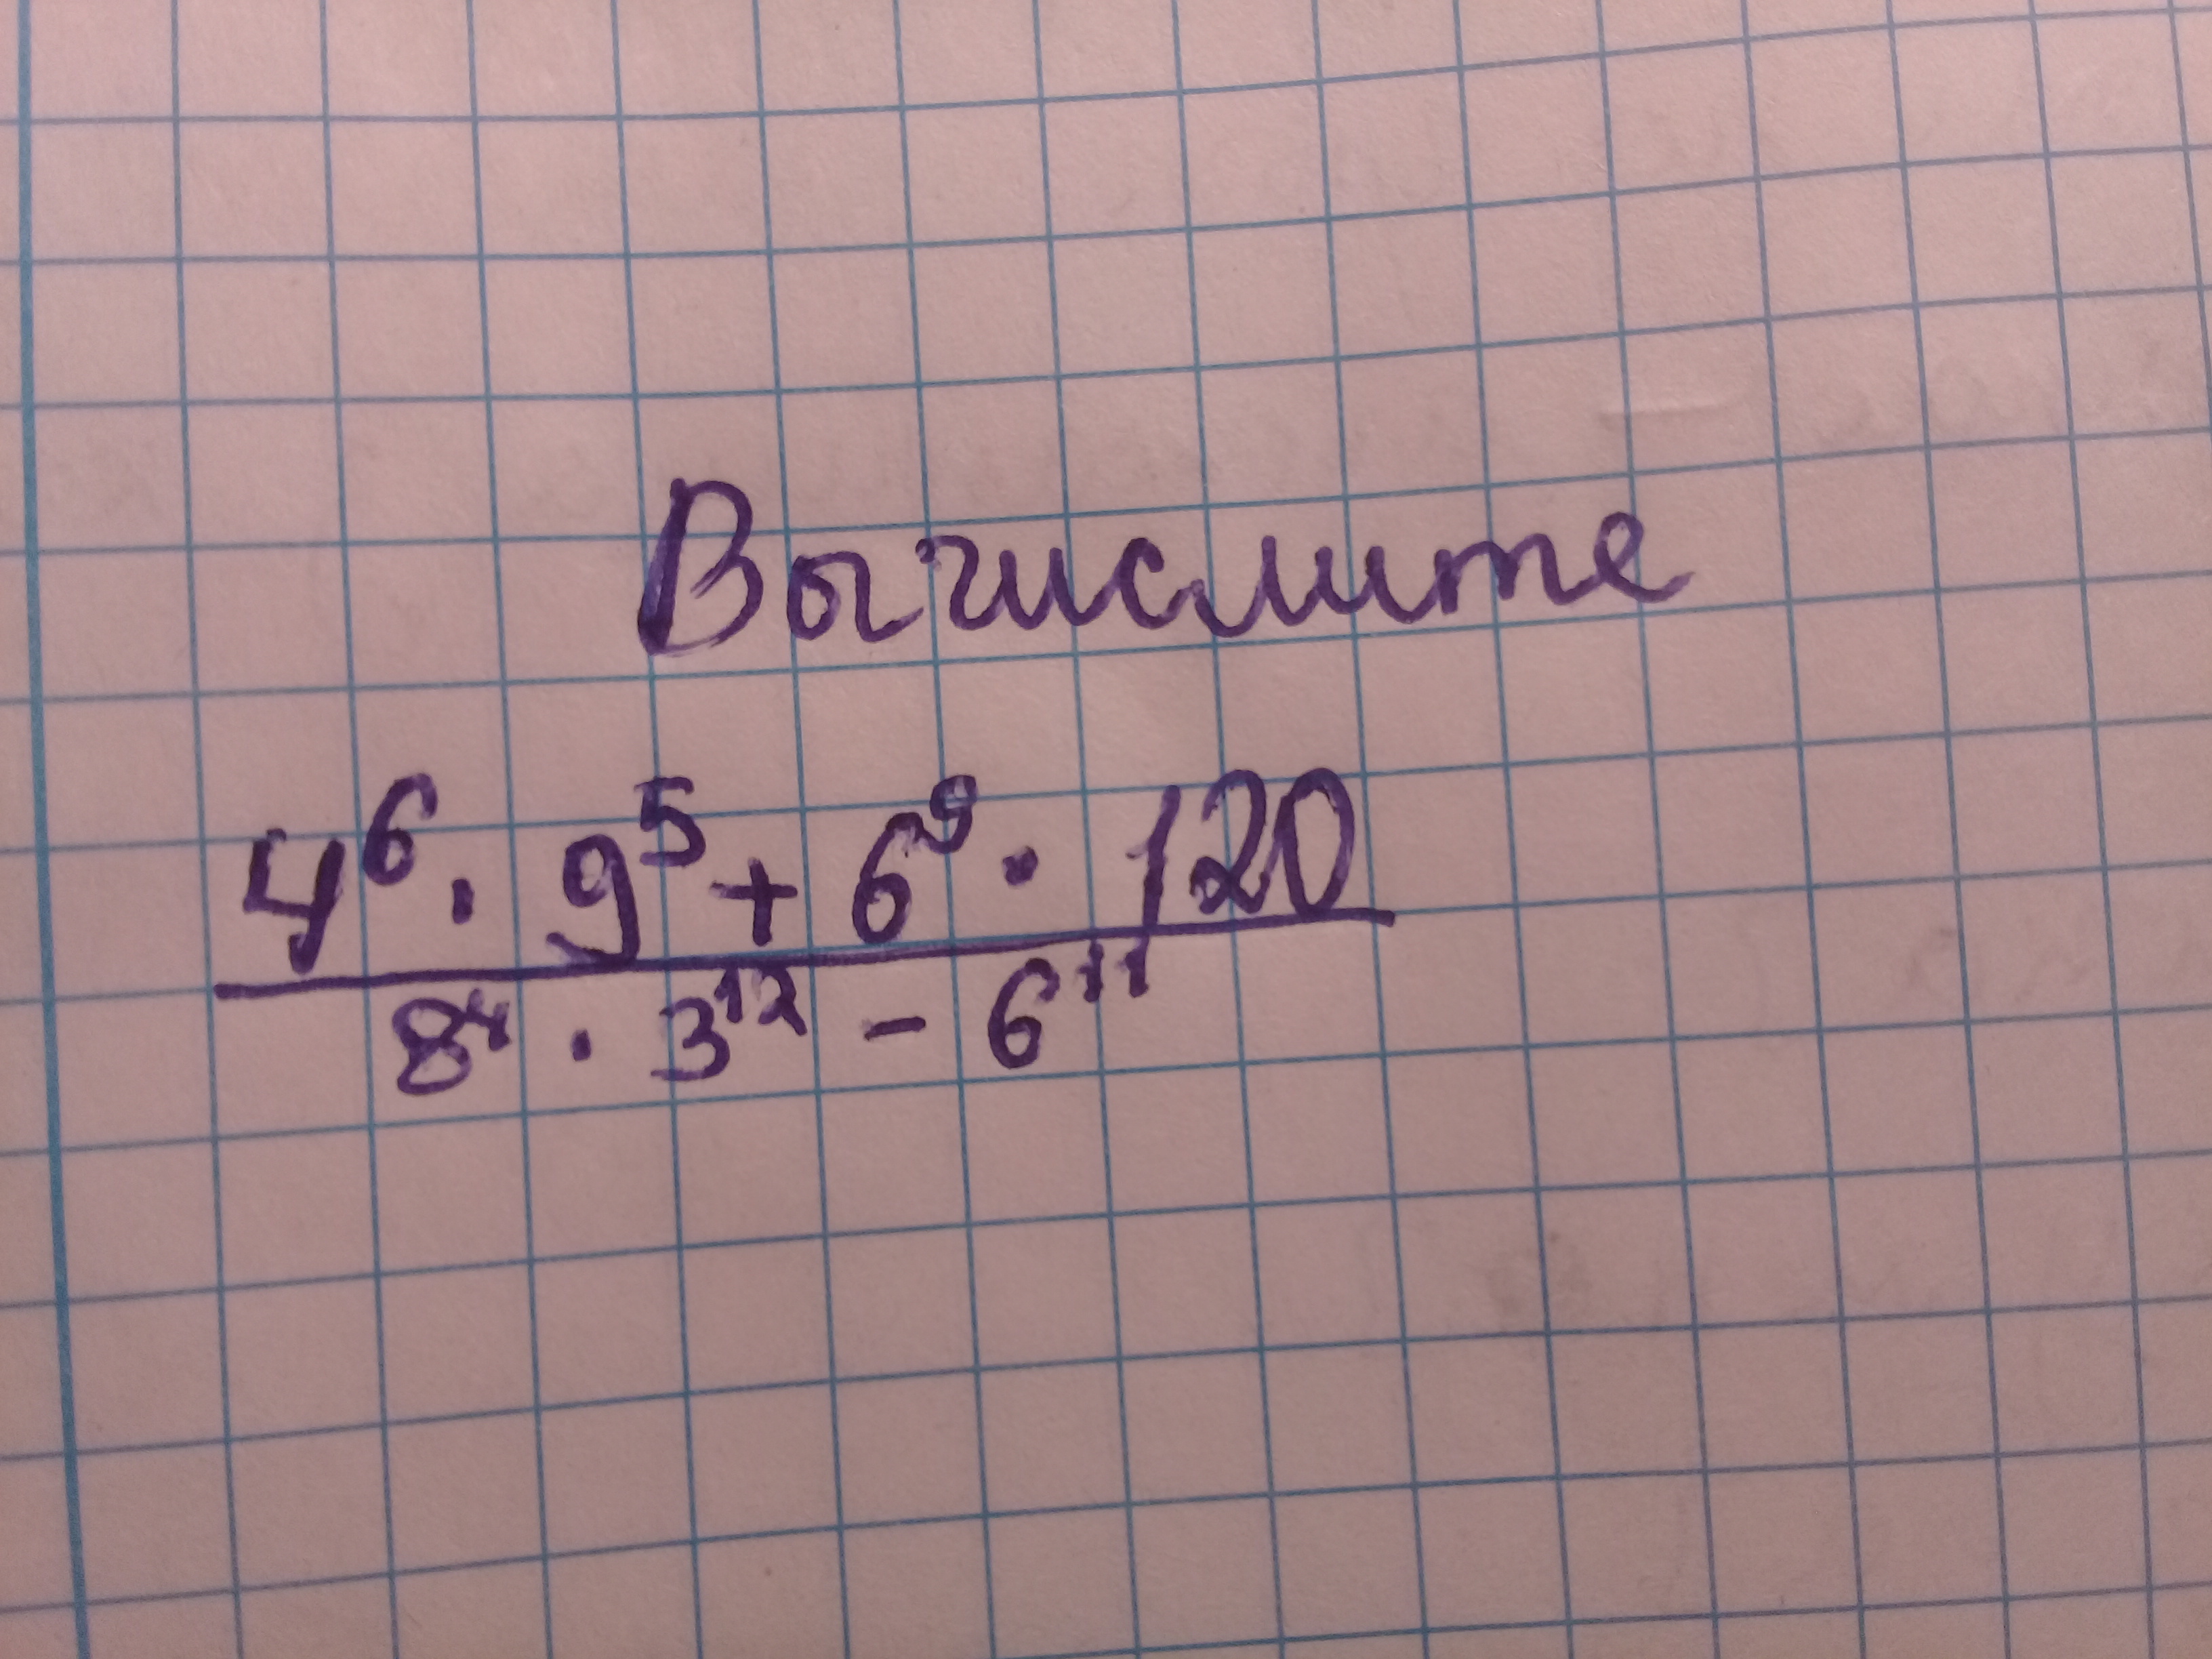 Вычислите
4⁶ · 9⁵ + 6⁹ · 120
8⁴ · 3¹² - 6¹¹